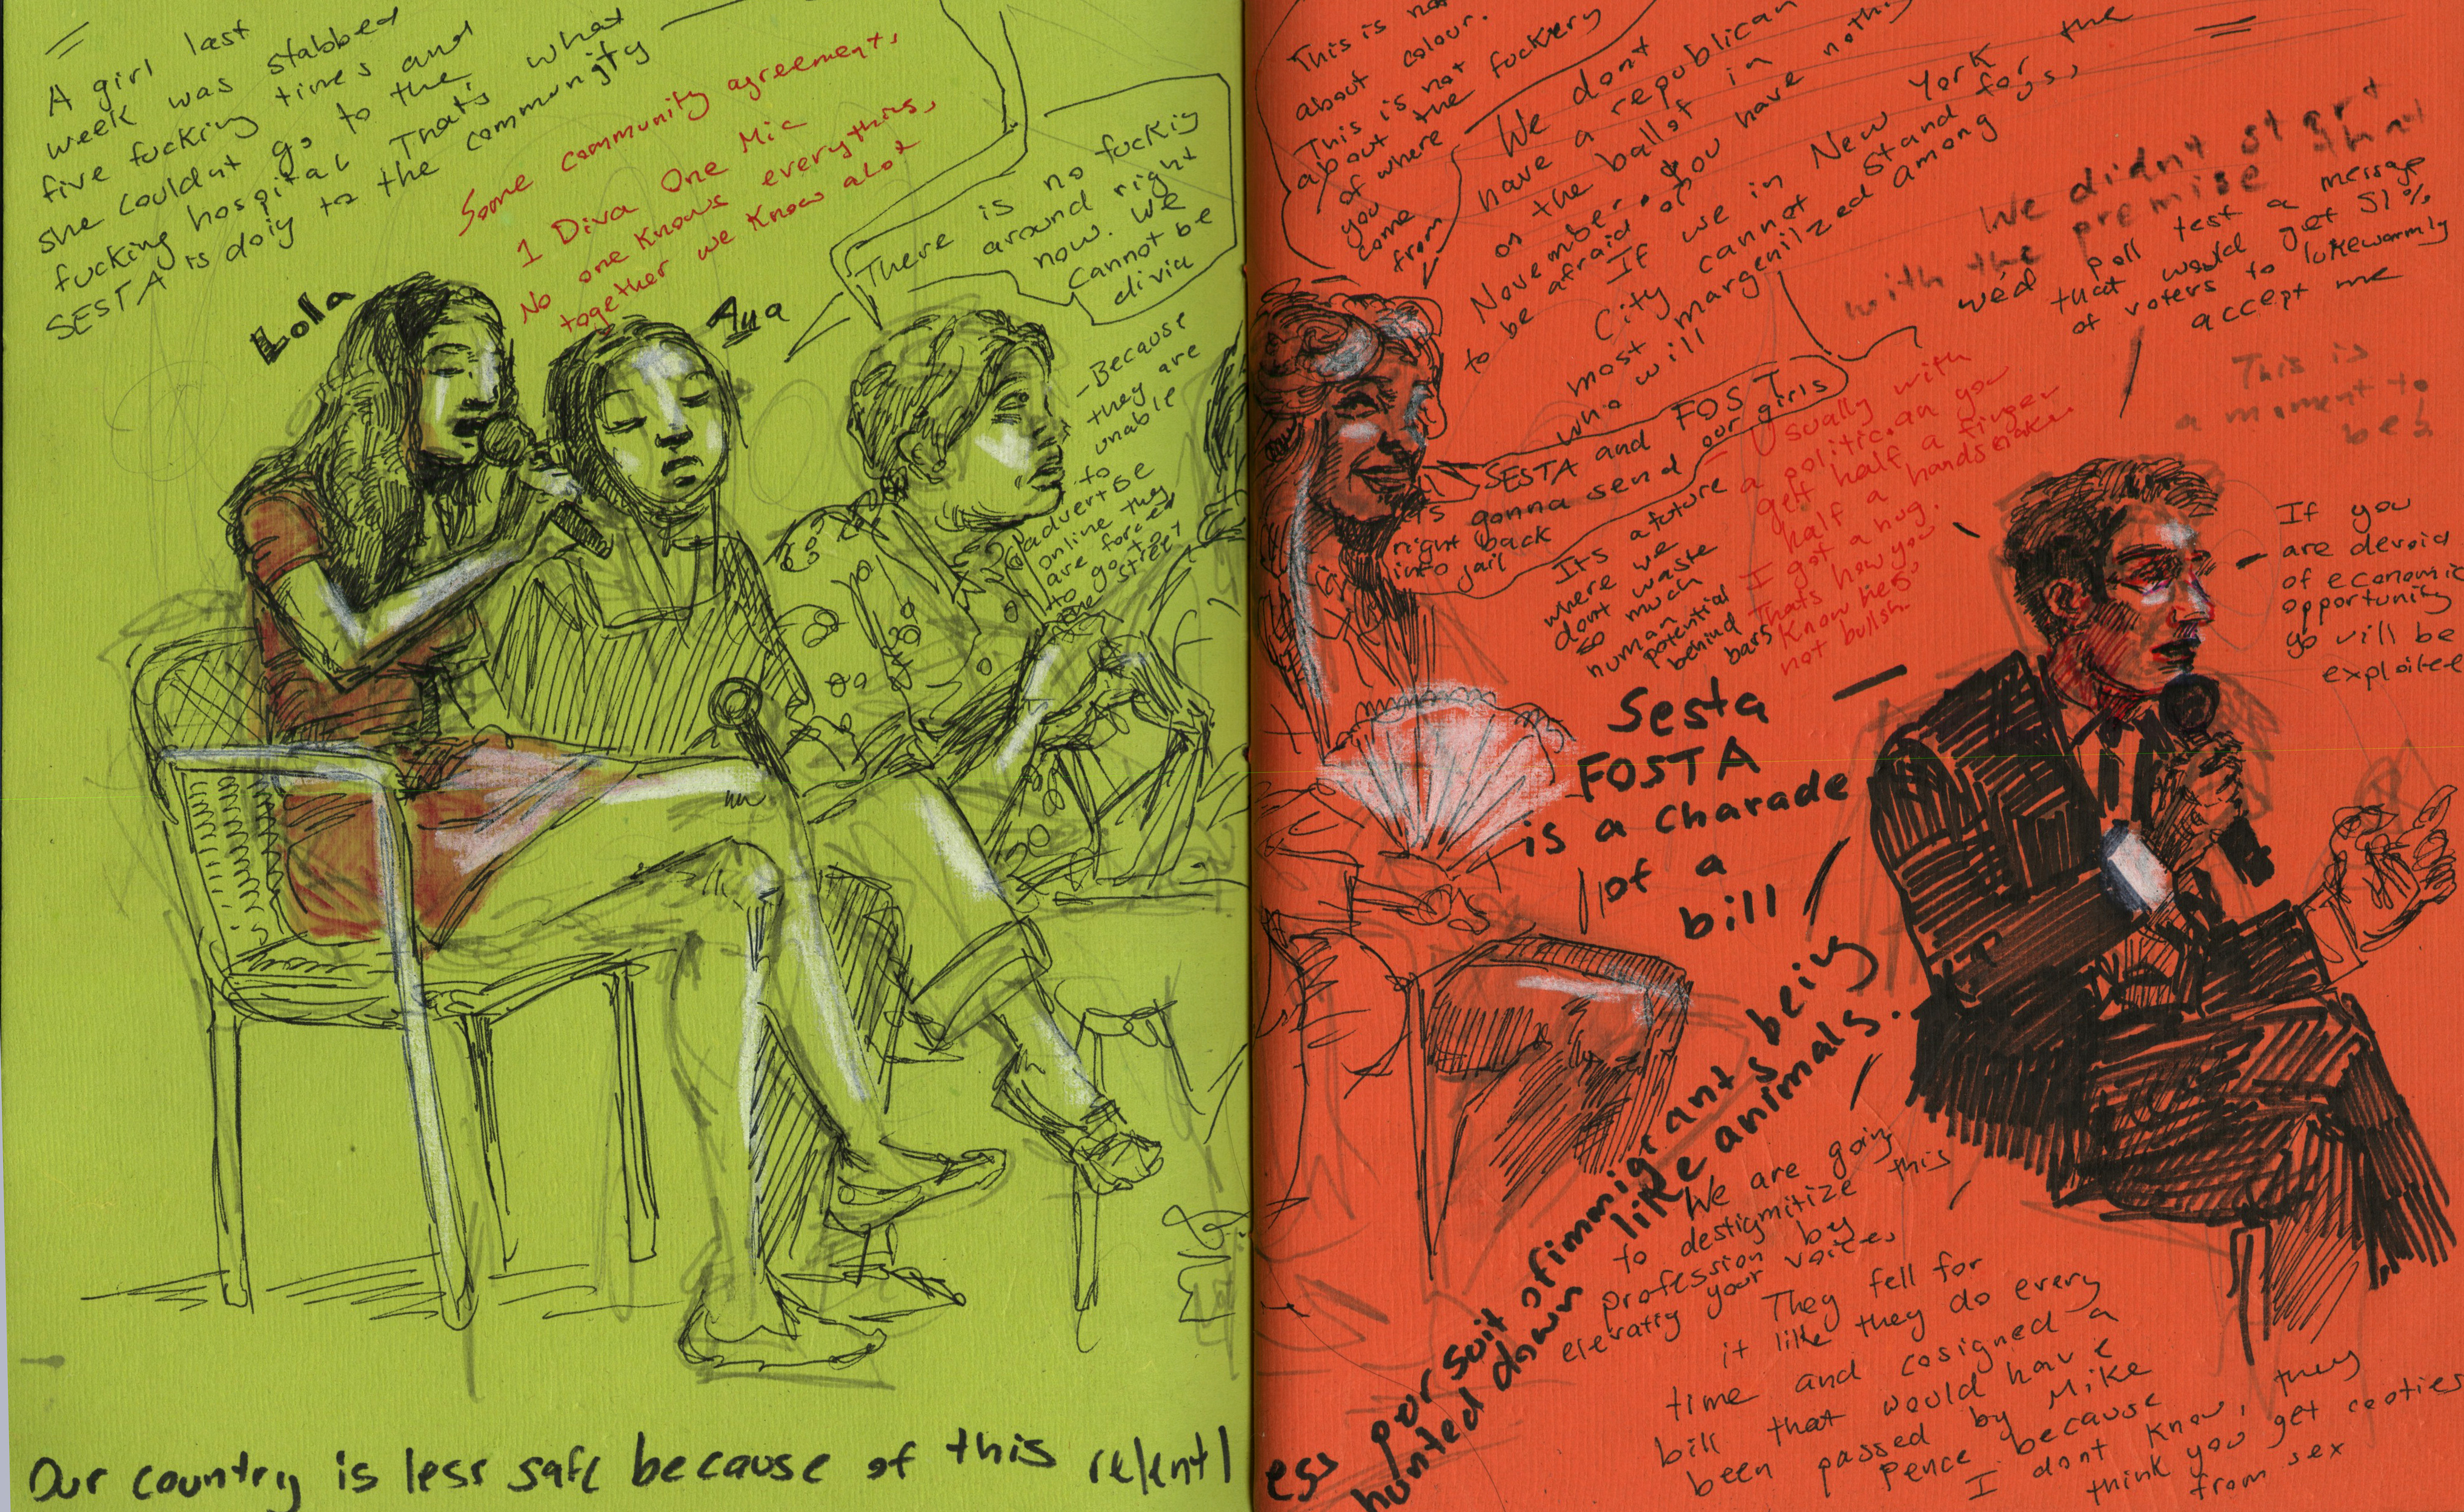 A girl last
week was stabbed
five fucking times and
she couldnt go to the
fucking hospital Thats what
SESTA is doig to the community
Some community agreements,
1 Diva One Mic
No one knows everything,
together we know alot
Lola
Ana
There is no fuckig
around right
now. We
Cannot be
divia
- Because
they are
unable
to
advertise
online they
are forced
to go to
the street
This is not
about colour.
This is not
about the fuckery
of where
you
come
from
We dont
have a republican
on the ballot in
November. you have nothing
to be afraid of
If we in New York
City cannot stand for the
most margenilzed among
who will
SESTA and FOST
its gonna send our girls
right back
into jail
Its a future
where we
dont waste
so much
human
potential
behind
bars
- Usually with
a politician you
get half a finger
half a handshake
I got a hug.
Thats how you
know hes
not bullsh.
We didnt start
with the premise that
wed poll test a message
that would get 51%
of voters to lukewarmly
accept me
This is
a moment to
be
If you
are devoid
of economic
opportunity
yo will be
exploitee
Sesta
FOSTA
is a charade
of a
bill
Our country is less safe because of this relentl
ess porsuit of immigrants being
hunted down like animals.
We are going
to destigmitize this
profession by
elevatig your voices
They fell for
it like they do every
time and cosigned a
bill that would have
been passed by Mike
Pence because
I dont know, they
think you get cooties
from sex